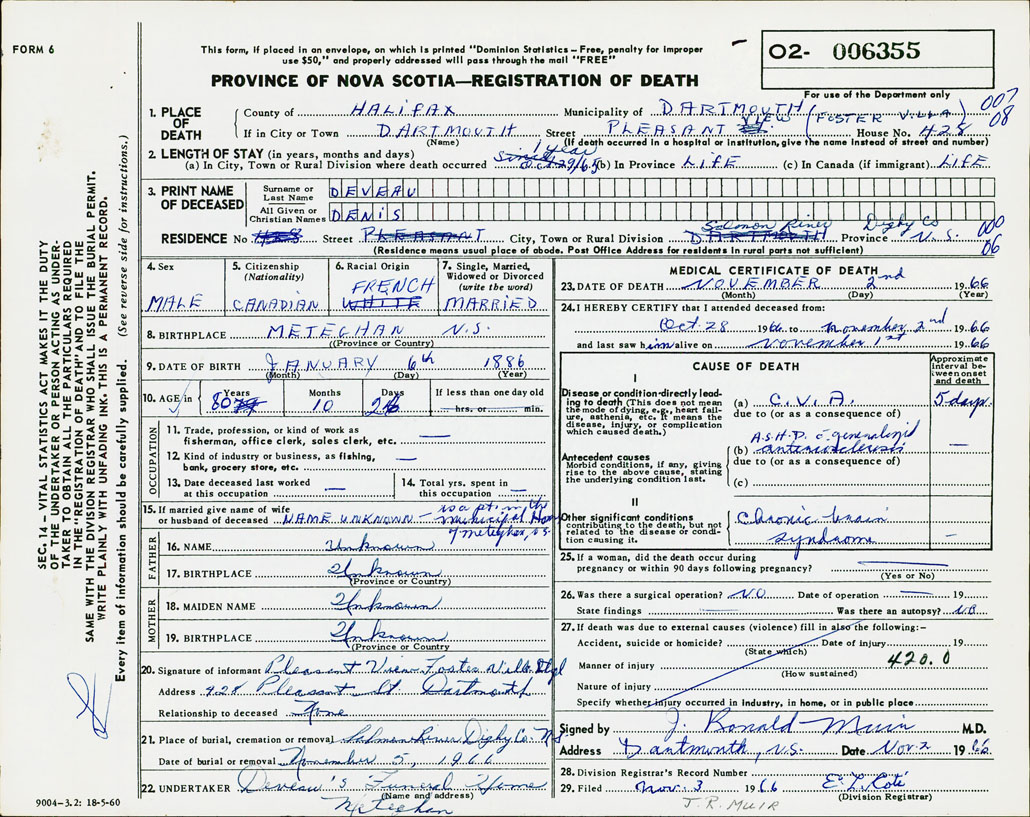 FORM 6
This form, if placed in an envelope, on which is printed "Dominion Statistics – Free, penalty for improper
use $50," and properly addressed will pass through the mail "FREE"
O2- 006355
PROVINCE OF NOVA SCOTIA—REGISTRATION OF DEATH
For use of the Department only
007
08
1. PLACE OF DEATH
County of HALIFAX Municipality of DARTMOUTH (FOSTER VILLA)
If in City or Town DARTMOUTH Street PLEASANT VIEW St. House No. 428
(Name) (If death occurred in a hospital or institution, give the name instead of street and number)
2. LENGTH OF STAY (in years, months and days) 1 year
(a) In City, Town or Rural Division where death occurred since Oct 29/65 (b) In Province LIFE (c) In Canada (if immigrant) LIFE
3. PRINT NAME OF DECEASED
Surname or Last Name DEVEAU
All Given or Christian Names DENIS
Salmon River Digby Co 000
RESIDENCE No 428 Street PLEASANT City, Town or Rural Division DARTMOUTH Province N.S. 06
(Residence means usual place of abode. Post Office Address for residents in rural parts not sufficient)
4. Sex MALE
5. Citizenship (Nationality) CANADIAN
6. Racial Origin FRENCH WHITE
7. Single, Married, Widowed or Divorced (write the word) MARRIED
8. BIRTHPLACE METEGHAN N.S.
(Province or Country)
9. DATE OF BIRTH JANUARY 6th 1886
(Month) (Day) (Year)
10. AGE in Years 80 Months 10 Days 26 If less than one day old
hrs. or min.
OCCUPATION
11. Trade, profession, or kind of work as fisherman, office clerk, sales clerk, etc. —
12. Kind of industry or business, as fishing, bank, grocery store, etc. —
13. Date deceased last worked at this occupation —
14. Total yrs. spent in this occupation —
15. If married give name of wife or husband of deceased NAME UNKNOWN – is a pt. in the municipal Home of meteghan, N.S.
FATHER
16. NAME Unknown
17. BIRTHPLACE Unknown
(Province or Country)
MOTHER
18. MAIDEN NAME Unknown
19. BIRTHPLACE Unknown
(Province or Country)
20. Signature of informant Pleasant View Foster Villa
Address 428 Pleasant St. Dartmouth
Relationship to deceased None
21. Place of burial, cremation or removal Salmon River Digby Co. N.S.
Date of burial or removal November 5, 1966
22. UNDERTAKER Deveau's Funeral Home
(Name and address)
Meteghan
MEDICAL CERTIFICATE OF DEATH
23. DATE OF DEATH NOVEMBER 2nd 1966
(Month) (Day) (Year)
24. I HEREBY CERTIFY that I attended deceased from:
Oct. 28 1966 to November 2nd 1966
and last saw him alive on November 1st 1966
CAUSE OF DEATH
Approximate interval between onset and death
I
Disease or condition directly leading to death (This does not mean the mode of dying, e.g., heart failure, asthenia, etc. It means the disease, injury, or complication which caused death.)
(a) C.V.A. 5 days.
due to (or as a consequence of)
Antecedent causes
Morbid conditions, if any, giving rise to the above cause, stating the underlying condition last.
A.S.H.D. c̄ generalized
(b) arteriosclerosis —
due to (or as a consequence of)
(c)
II
Other significant conditions contributing to the death, but not related to the disease or condition causing it.
Chronic brain
syndrome —
25. If a woman, did the death occur during pregnancy or within 90 days following pregnancy?
(Yes or No)
26. Was there a surgical operation? NO Date of operation — 19
State findings — Was there an autopsy? NO
27. If death was due to external causes (violence) fill in also the following:–
Accident, suicide or homicide? Date of injury 19
(State which)
Manner of injury 420.0
(How sustained)
Nature of injury
Specify whether injury occurred in industry, in home, or in public place
Signed by J. Ronald Muir M.D.
Address Dartmouth, N.S. Date Nov 2 1966
28. Division Registrar's Record Number
29. Filed Nov. 3 1966 E L Koté
(Division Registrar)
J.R. MUIR
SEC. 14 – VITAL STATISTICS ACT MAKES IT THE DUTY
OF THE UNDERTAKER OR PERSON ACTING AS UNDER-
TAKER TO OBTAIN ALL THE PARTICULARS REQUIRED
IN THE "REGISTRATION OF DEATH" AND TO FILE THE
SAME WITH THE DIVISION REGISTRAR WHO SHALL ISSUE THE BURIAL PERMIT.
WRITE PLAINLY WITH UNFADING INK. THIS IS A PERMANENT RECORD.
Every item of information should be carefully supplied. (See reverse side for instructions.)
9004-3.2: 18-5-60